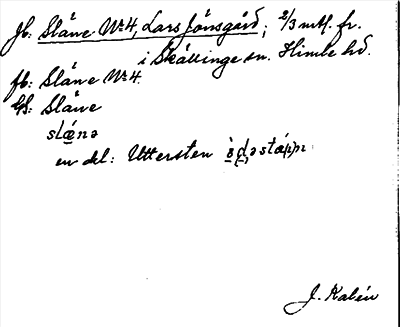 Jb: Slåne No 4, Lars Jönsgård; 2/3 mtl. fr.
i Skällinge sn. Himle hd.
fb: Slåne No 4.
Us: Slåne
slǽnə
en del: Uttersten
J. Kalén